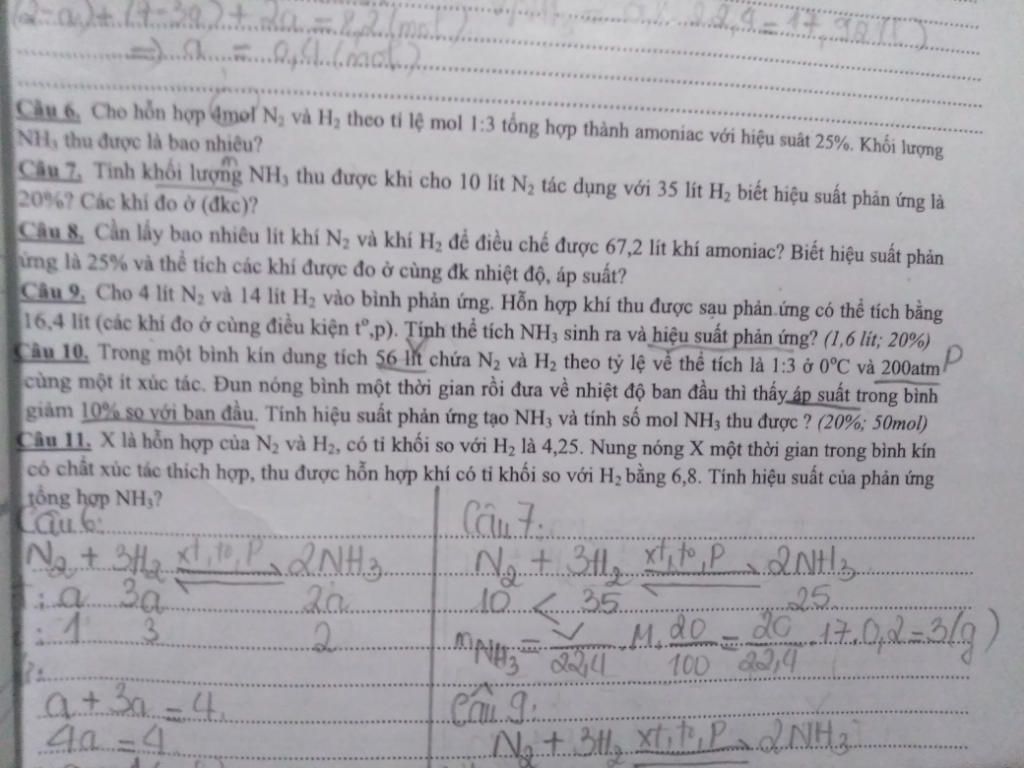 (2-a)+(7-3a)+2a=8,2(mol)
=> a = 0,4(mol)
Câu 6. Cho hỗn hợp 4mol N₂ và H₂ theo tỉ lệ mol 1:3 tổng hợp thành amoniac với hiệu suât 25%. Khối lượng
NH₃ thu được là bao nhiêu?
Câu 7. Tính khối lượng NH₃ thu được khi cho 10 lít N₂ tác dụng với 35 lít H₂ biết hiệu suất phản ứng là
20%? Các khí đo ở (đkc)?
Câu 8. Cần lấy bao nhiêu lít khí N₂ và khí H₂ để điều chế được 67,2 lít khí amoniac? Biết hiệu suất phản
ứng là 25% và thể tích các khí được đo ở cùng đk nhiệt độ, áp suất?
Câu 9. Cho 4 lít N₂ và 14 lít H₂ vào bình phản ứng. Hỗn hợp khí thu được sau phản ứng có thể tích bằng
16,4 lít (các khí đo ở cùng điều kiện t°,p). Tính thể tích NH₃ sinh ra và hiệu suất phản ứng? (1,6 lít; 20%)
Câu 10. Trong một bình kín dung tích 56 lít chứa N₂ và H₂ theo tỷ lệ về thể tích là 1:3 ở 0°C và 200atm P
cùng một ít xúc tác. Đun nóng bình một thời gian rồi đưa về nhiệt độ ban đầu thì thấy áp suất trong bình
giảm 10% so với ban đầu. Tính hiệu suất phản ứng tạo NH₃ và tính số mol NH₃ thu được ? (20%; 50mol)
Câu 11. X là hỗn hợp của N₂ và H₂, có tỉ khối so với H₂ là 4,25. Nung nóng X một thời gian trong bình kín
có chất xúc tác thích hợp, thu được hỗn hợp khí có tỉ khối so với H₂ bằng 6,8. Tính hiệu suất của phản ứng
tổng hợp NH₃?
Câu 6:
N₂ + 3H₂ xt,to,P 2NH₃
: a 3a 2a
: 1 3 2
a + 3a = 4
4a = 4
Câu 7:
N₂ + 3H₂ xt,to,P 2NH₃
10 < 35 25
mNH₃ = V/22,4 . M . 20/100 = 20/22,4 . 17 . 0,2 = 3(g)
Câu 9:
N₂ + 3H₂ xt,to,P 2NH₃